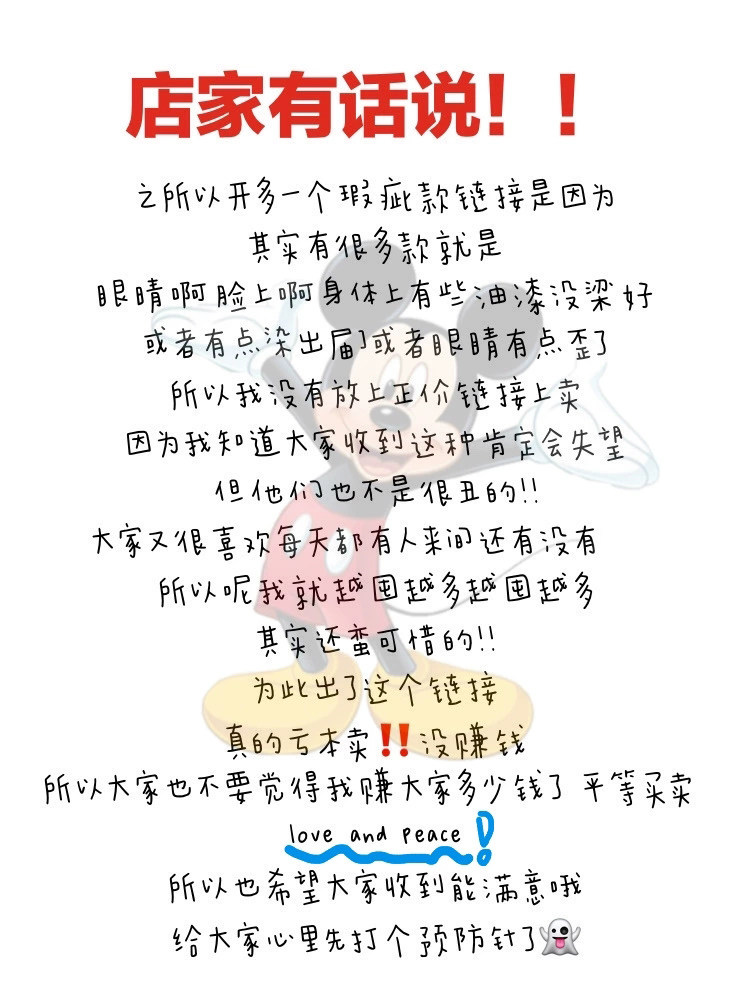 店家有话说！！
之所以开多一个瑕疵款链接是因为
其实有很多款就是
眼睛啊脸上啊身体上有些油漆没梁好
或者有点染出届了或者眼睛有点歪了
所以我没有放上正价链接上卖
因为我知道大家收到这种肯定会失望
但他们也不是很丑的!!
大家又很喜欢每天都有人来问还有没有
所以呢我就越囤越多越囤越多
其实还蛮可惜的!!
为此出了这个链接
真的亏本卖‼️没赚钱
所以大家也不要觉得我赚大家多少钱了 平等买卖
love and peace!
所以也希望大家收到能满意哦
给大家心里先打个预防针了👻